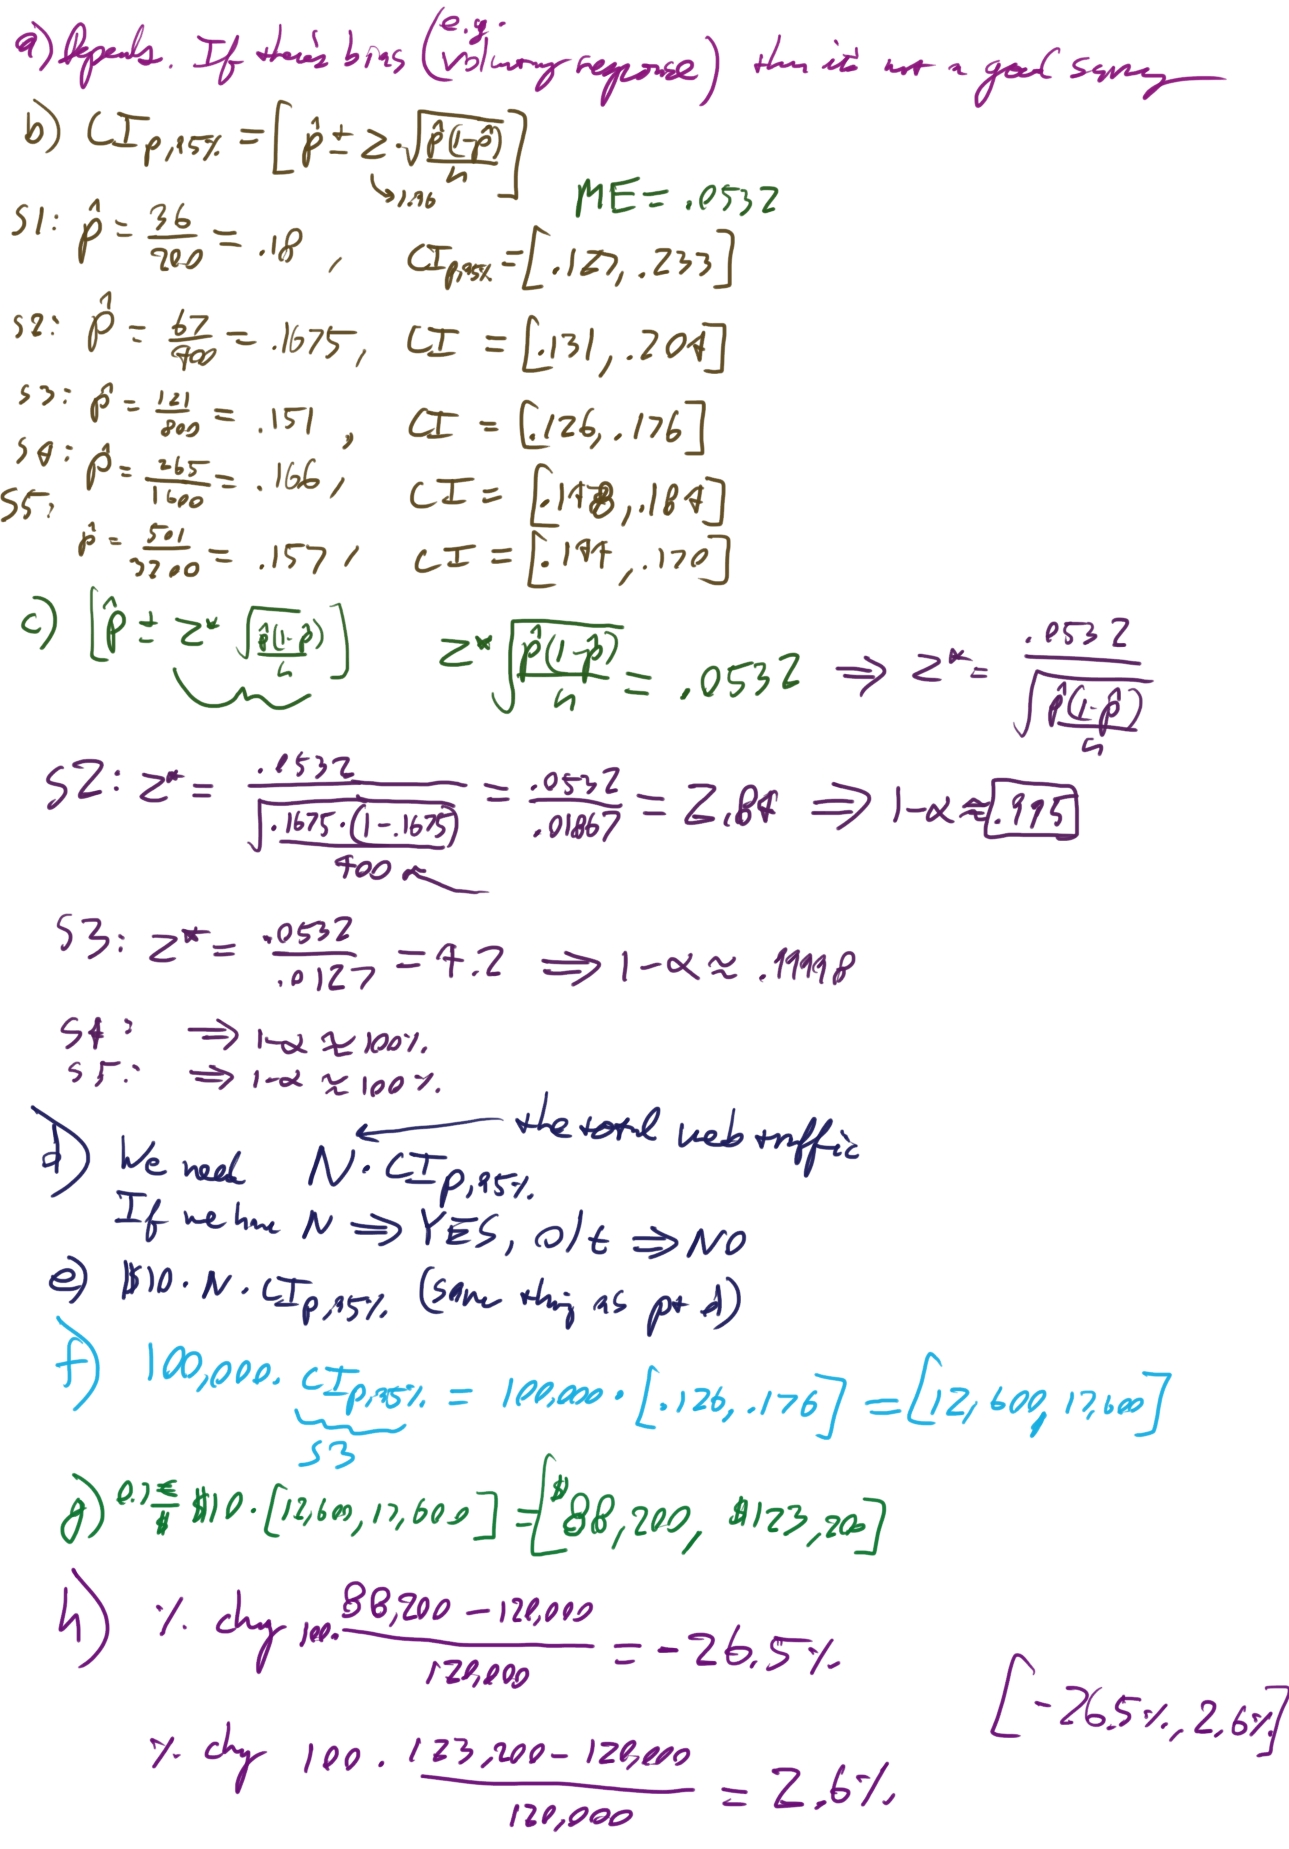 a) Depends. If there's bias (e.g. voluntary response) then it's not a good survey
b) CI_{p,95%} = [p̂ ± z·√(p̂(1-p̂)/n)]
↳1.96
ME = .0532
S1: p̂ = 36/200 = .18, CI_{p,95%} = [.127, .233]
S2: p̂ = 67/400 = .1675, CI = [.131, .204]
S3: p̂ = 121/800 = .151, CI = [.126, .176]
S4: p̂ = 265/1600 = .166, CI = [.148, .184]
S5: p̂ = 501/3200 = .157, CI = [.144, .170]
c) [p̂ ± z* √(p̂(1-p̂)/n)] z* √(p̂(1-p̂)/n) = .0532 ⇒ z* = .0532/√(p̂(1-p̂)/n)
S2: z* = .0532/√(.1675·(1-.1675)/400) = .0532/.01867 = 2.84 ⇒ 1-α ≈ .995
S3: z* = .0532/.0127 = 4.2 ⇒ 1-α ≈ .99998
S4: ⇒ 1-α ≈ 100%.
S5: ⇒ 1-α ≈ 100%.
d) We need N·CI_{p,95%} ← the total web traffic
If we have N ⇒ YES, o/t ⇒ NO
e) $10·N·CI_{p,95%} (same thing as pt d)
f) 100,000·CI_{p,95%} = 100,000·[.126, .176] = [12,600, 17,600]
S3
g) 0.7 €/$ $10·[12,600, 17,600] = [$88,200, $123,200]
h) % chg 100·(88,200 - 120,000)/120,000 = -26.5%
[-26.5%, 2.6%]
% chg 100·(123,200 - 120,000)/120,000 = 2.6%